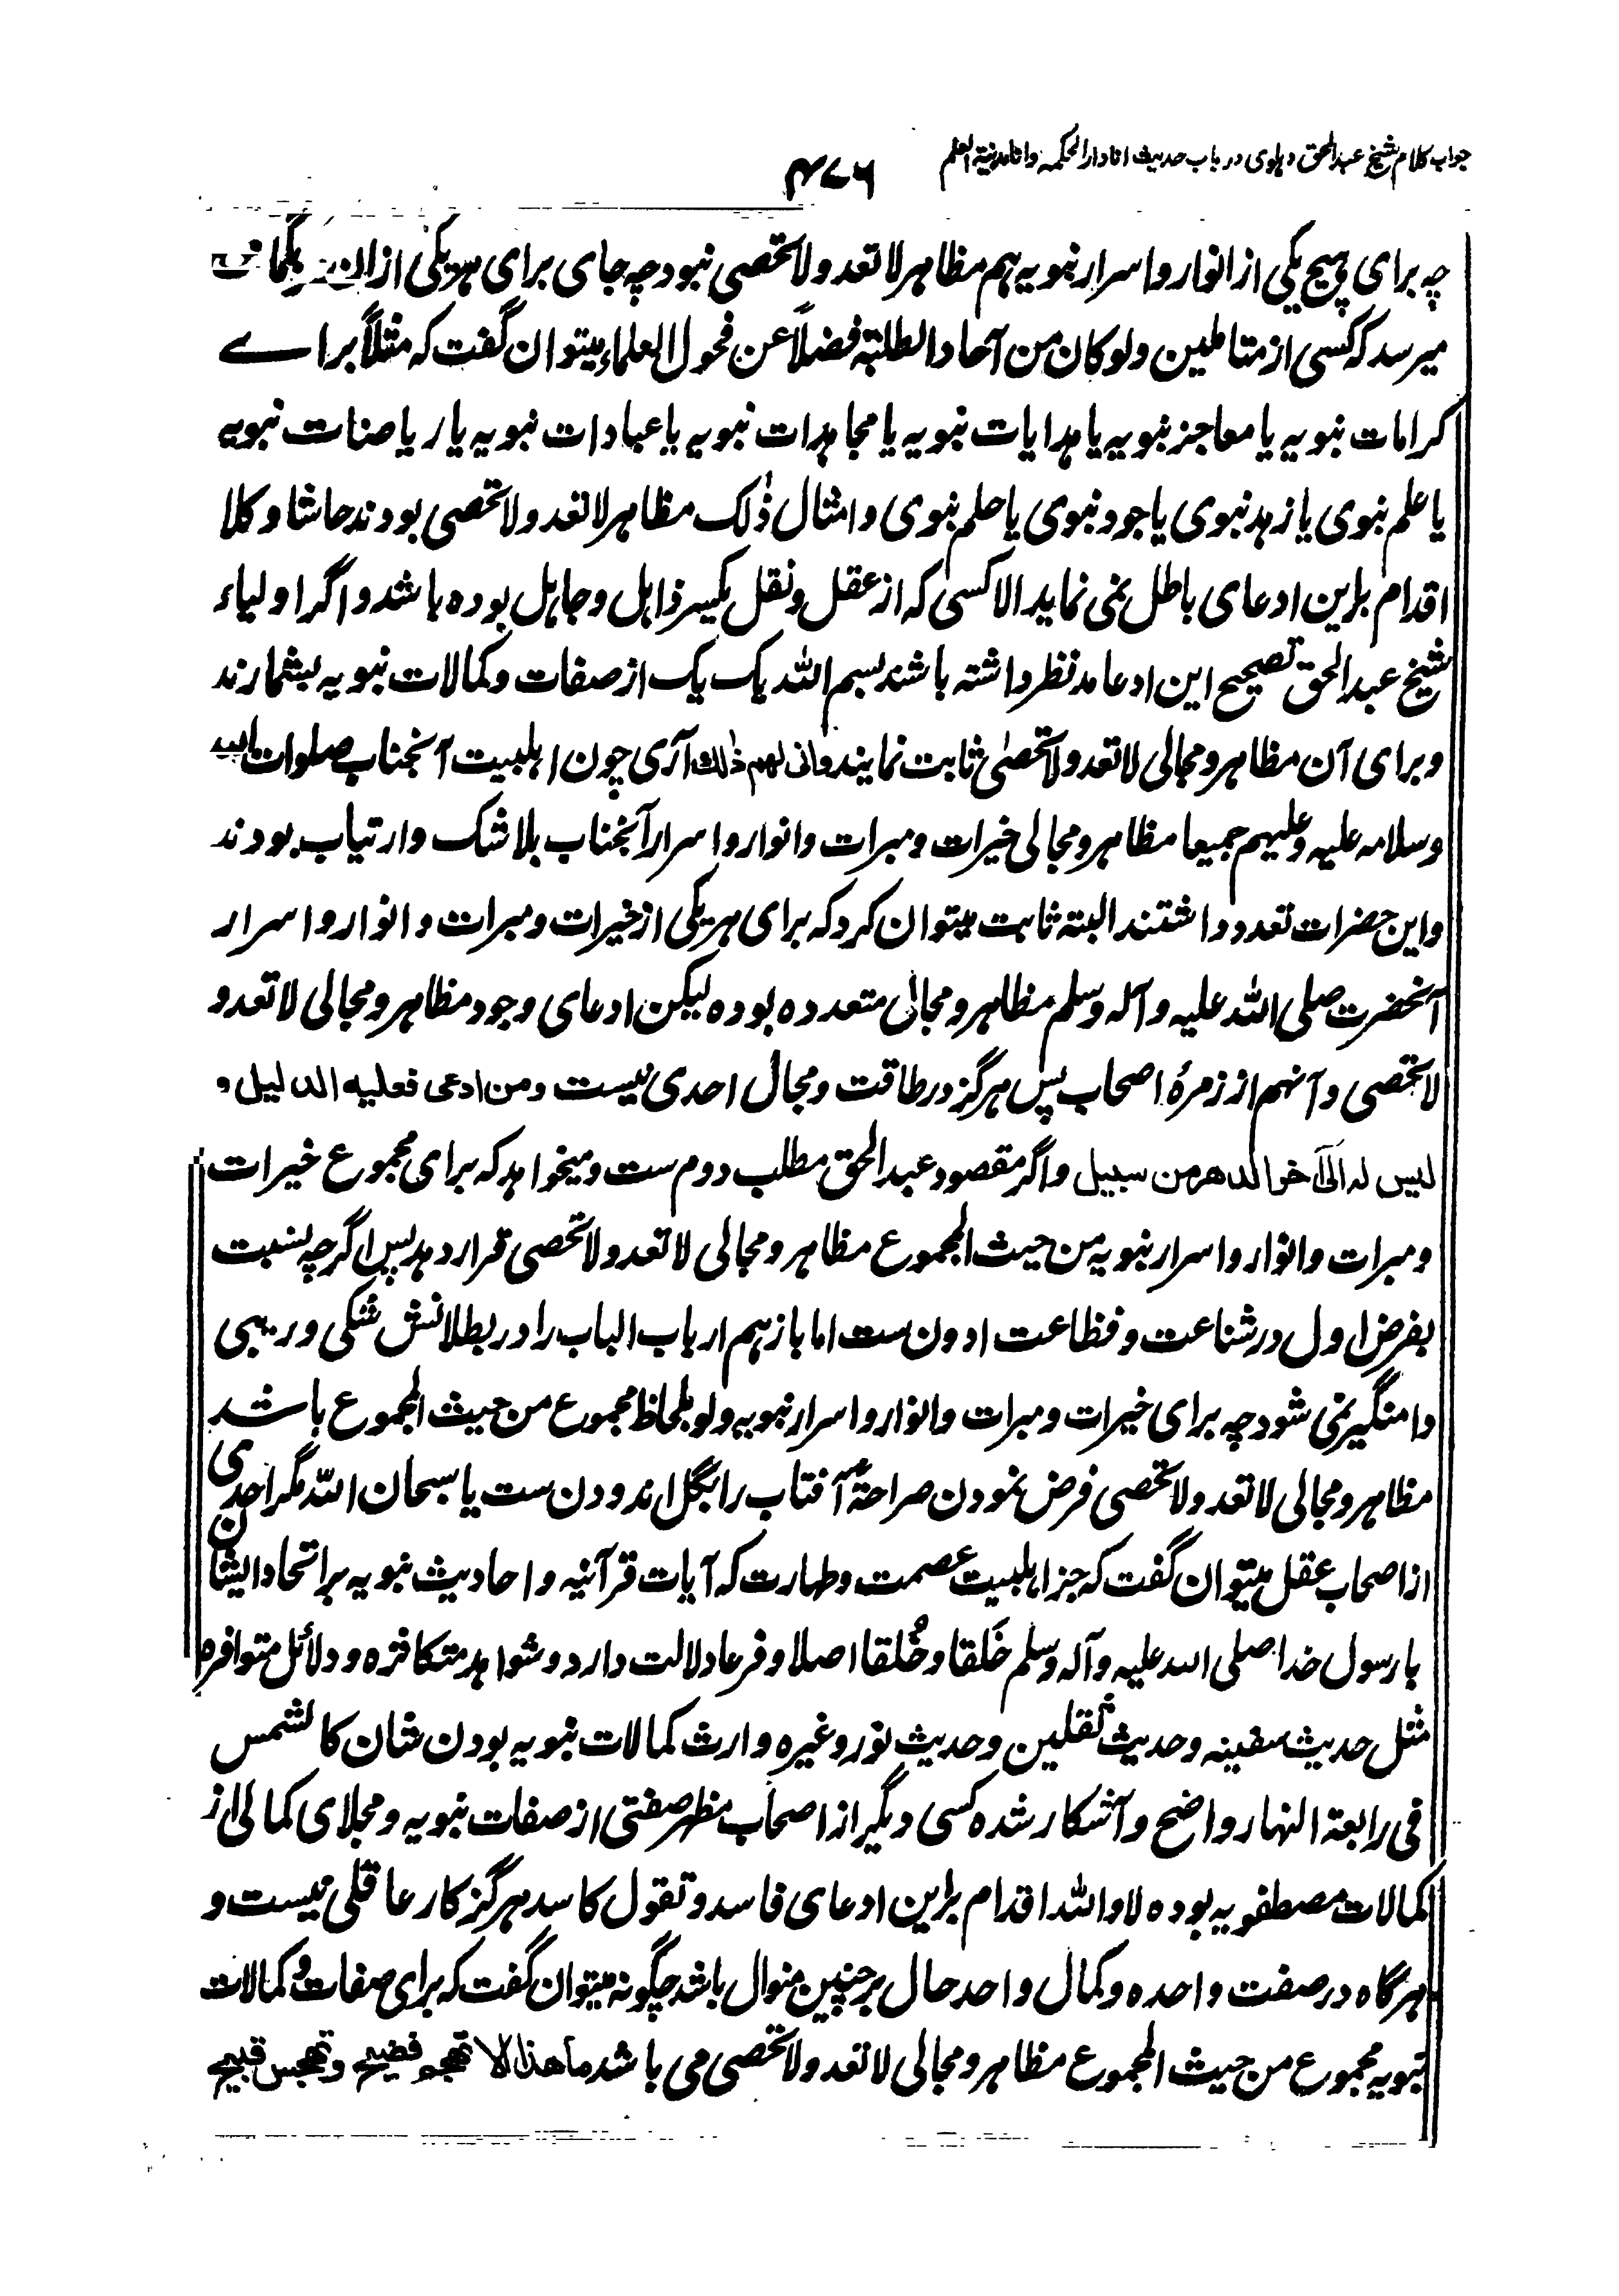 جواب کلام شیخ عبدالحق دہلوی در باب حدیث انا دارالحکمہ وانا مدینۃ العلم
۴۷۶
چہ برای ہیچ یکی از انوار و اسرار نبویہ ہم مظاہر لا تعد ولا تحصی نبود چہ جای برای ہر یکی ازان
میرسد کہ کسی از متاملین ولو کان من آحاد الطلبۃ فضلاً عن فحول العلماء میتوان گفت کہ مثلاً براے
کرامات نبویہ یا معاجز نبویہ یا ہدایات نبویہ یا مجاہدات نبویہ یا عبادات نبویہ یا ریاضات نبویہ
یا علم نبوی یا زہد نبوی یا جود نبوی یا حلم نبوی و امثال ذٰلک مظاہر لا تعد ولا تحصی بودند حاشا و کلا
اقدام برین ادعای باطل نمی نماید الا کسی کہ از عقل و نقل یکسر ذاہل و جاہل بودہ باشد و اگر اولیاء
شیخ عبدالحق تصحیح این ادعا مد نظر داشتہ باشند بسم اللہ یک یک از صفات و کمالات نبویہ بشمارند
و برای آن مظاہر و مجالی لا تعد ولا تحصٰی ثابت نمایند وانی لہم ذٰلک آری چون اہلبیت آنجناب صلوات اللہ
وسلامہ علیہ وعلیہم جمیعا مظاہر و مجالی خیرات و مبرات و انوار و اسرار آنجناب بلا شک و ارتیاب بودند
واین حضرات تعدد داشتند البتہ ثابت میتوان کرد کہ برای ہر یکی از خیرات و مبرات و انوار و اسرار
آنحضرت صلی اللہ علیہ وآلہ وسلم مظاہر و مجالی متعددہ بودہ لیکن ادعای وجود مظاہر و مجالی لا تعد و
لا تحصی و آنہم از زمرۂ اصحاب پس ہرگز در طاقت و مجال احدی نیست ومن ادعی فعلیہ الدلیل و
لیس لہ الی آخر الدھر من سبیل و اگر مقصود عبدالحق مطلب دوم ست و میخواہد کہ برای مجموع خیرات
و مبرات و انوار و اسرار نبویہ من حیث المجموع مظاہر و مجالی لا تعد ولا تحصی قرار دہد پس اگرچہ بنسبت
بفرض اول در شناعت و فظاعت ادون ست اما باز ہم ارباب الباب را در بطلانش شکی و ریبی
دامنگیر نمی شود چہ برای خیرات و مبرات و انوار و اسرار نبویہ ولو بلحاظ مجموع من حیث المجموع باشد
مظاہر و مجالی لا تعد ولا تحصی فرض نمودن صراحۃً آفتاب را بگل اندودن ست یا سبحان اللہ مگر احدی
از اصحاب عقل میتوان گفت کہ جز اہلبیت عصمت و طہارت کہ آیات قرآنیہ و احادیث نبویہ بر اتحاد ایشان
با رسول خدا صلی اللہ علیہ وآلہ وسلم خَلقا و خُلقا اصلا و فرعا دلالت دارد و شواہد متکاثرہ و دلائل متوافرہ
مثل حدیث سفینہ و حدیث ثقلین و حدیث نور وغیرہ وارث کمالات نبویہ بودن شان کالشمس
فی رابعۃ النہار واضح و آشکار شدہ کسی دیگر از اصحاب مظہر صفتی از صفات نبویہ و مجلای کمالی از
کمالات مصطفویہ بودہ لا واللہ اقدام برین ادعای فاسد و تقول کاسد ہرگز کار عاقلی نیست و
ہرگاہ در صفت واحدہ و کمال واحد حال بر چنین منوال باشد چگونہ میتوان گفت کہ برای صفات و کمالات
نبویہ مجموع من حیث المجموع مظاہر و مجالی لا تعد ولا تحصی می باشد ماھذا الا تھجم فضیح و تھجس قبیح